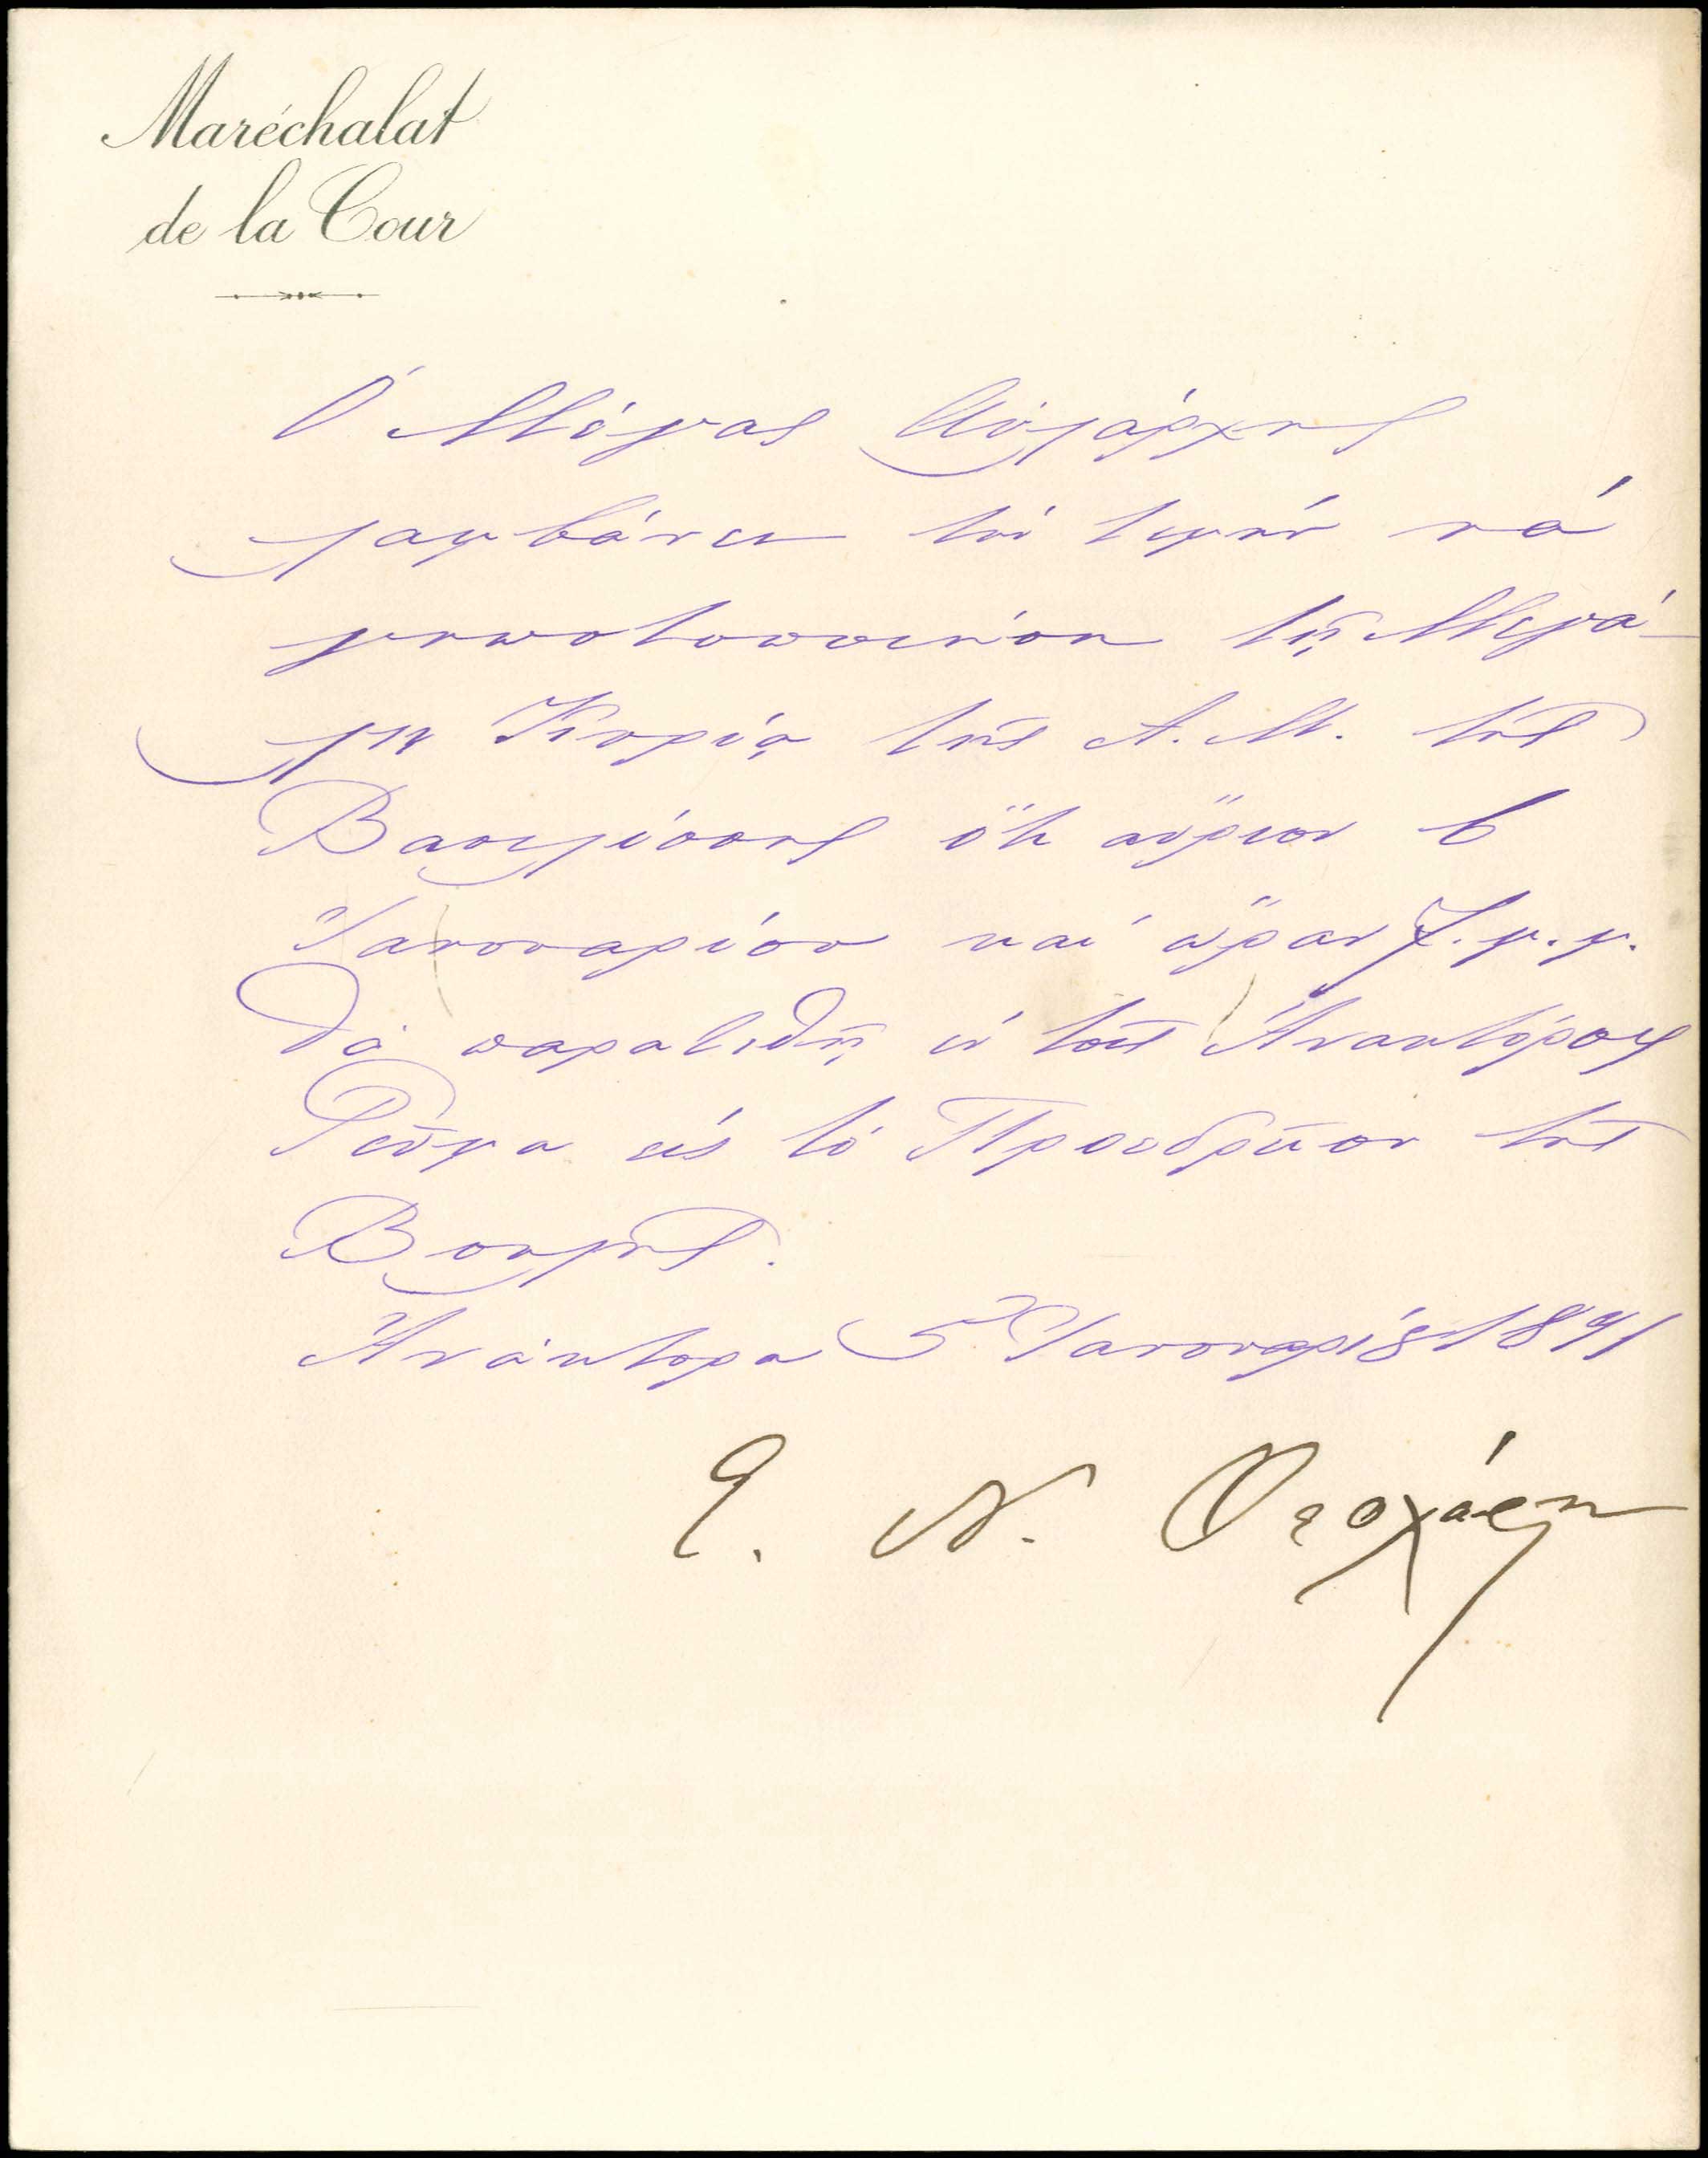 Maréchalat
de la Cour
Ὁ Μέγας Αὐλάρχης
λαμβάνει τὴν τιμὴν νὰ
γνωστοποιήσῃ τῇ Μεγά-
λῃ Κυρίᾳ τῆς Α. Μ. τῆς
Βασιλίσσης ὅτι αὔριον 6
Ἰανουαρίου καὶ ὥραν 7. μ. μ.
θὰ παρατεθῇ ἐν τοῖς Ἀνακτόροις
Γεῦμα εἰς τὸ Προεδρεῖον τῆς
Βουλῆς.
Ἀνάκτορα 5 Ἰανουαρίου 1891